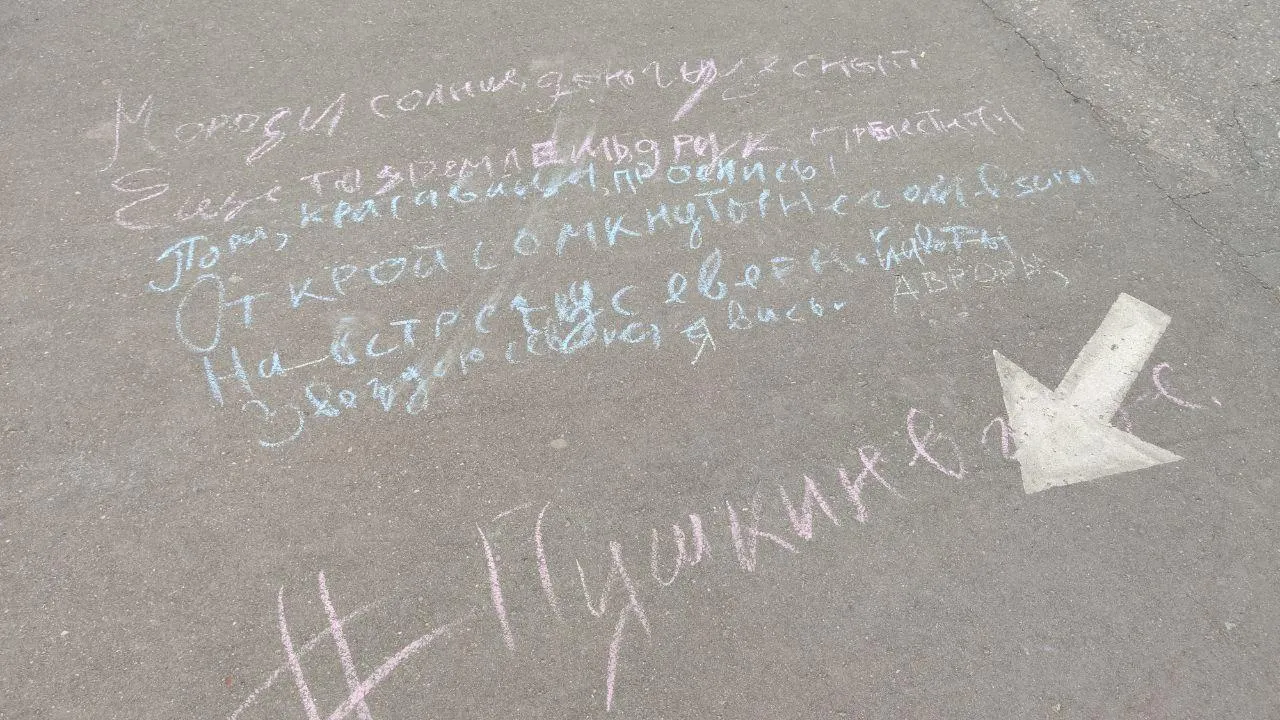 Мороз И солнце, день чудесный
Еще ты дремлешь друг прелестный
Пора, красавица, проснись!
Открой сомкнуты негой взоры
На встречу северной
Авроры,
Звездою севера явись.
#Пушкин